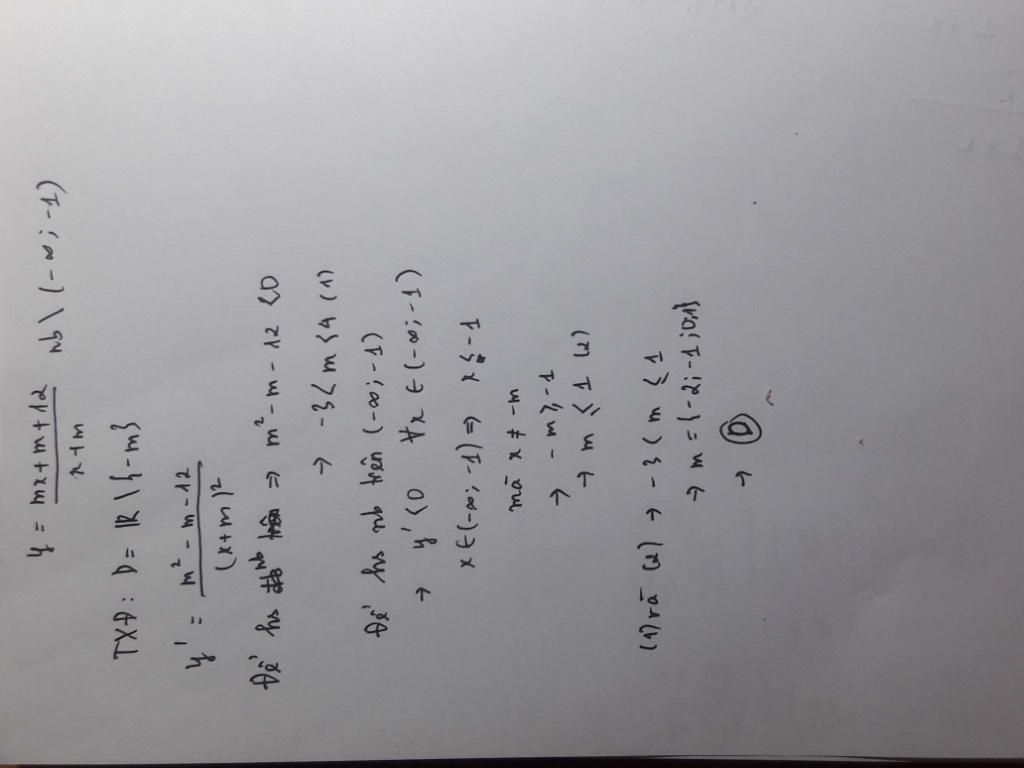 y = \frac{mx+m+12}{x+m} nb \ (-∞;-1)
TXĐ: D = ℝ \ {-m}
y' = \frac{m² - m - 12}{(x+m)²}
Để hs nb => m² - m - 12 < 0
→ -3 < m < 4 (1)
Để hs nb trên (-∞;-1)
→ y' < 0 ∀x ∈ (-∞;-1)
x ∈ (-∞;-1) => x < -1
mà x ≠ -m
→ -m ≥ -1
→ m ≤ 1 (2)
(1) và (2) → -3 < m ≤ 1
→ m = {-2;-1;0;1}
→ D